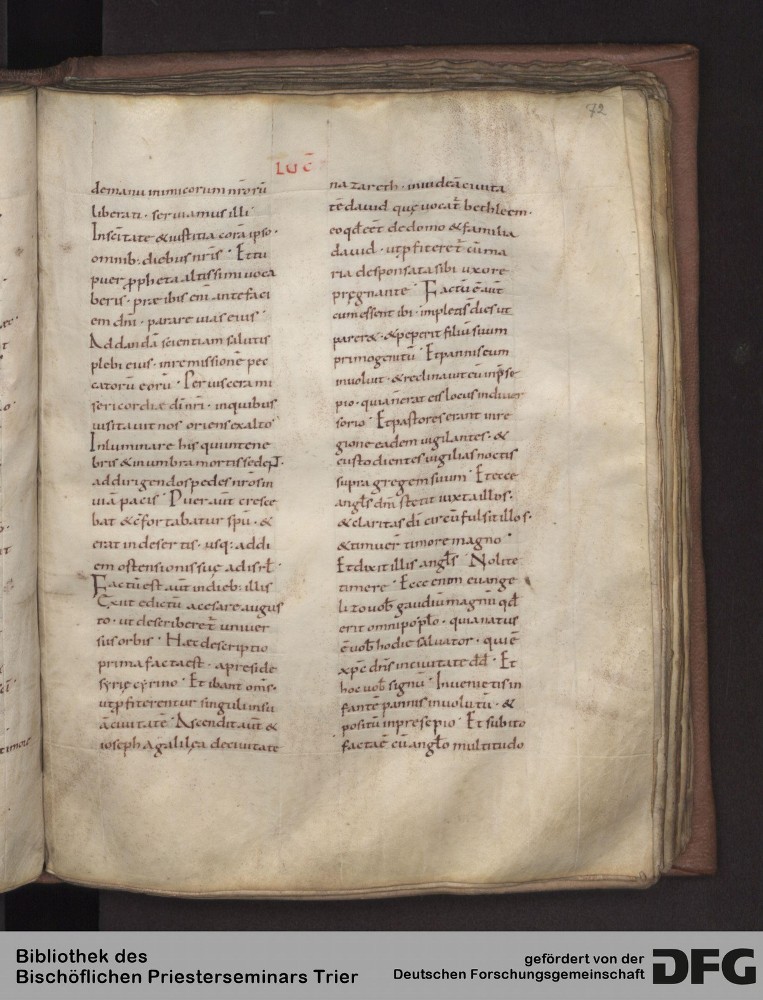 72
LUC̄
demanu inimicorum nr̄orū
liberati · seruiamus illi
Insc̄itate & iustitia corā ipso ·
omnib; diebus nr̄is · Et tu
puer ppheta altissimi uoca
beris · præibis enī ante faci
em dn̄i · parare uias eius
Addandā scientiam salutis
plebi eius · inremissionē pec
catorū eorū · Per uiscera mi
sericordiæ dī nr̄i · inquibus
uisitauit nos oriens exalto
Inluminare his qui intene
bris & inumbra mortis sedeɴᴛ ·
addirigendos pedes nr̄os in
uiā pacis · Puer aūt cresce
bat & c̄fortabatur sp̄u · &
erat indesertis · usq; addi
em ostensionis suę adisrl̄
Factū est aūt indieb; illis
Exiit edictū acesare augus
to · ut describeret̄ uniuer
sus orbis · Hæc descriptio
prima facta est · apreside
syrię cyrino · Et ibant om̄s ·
utpfiterentur singuli insu
ā ciuitatē · Ascendit aūt &
ioseph agalilęa deciuitate
nazareth · iniudeā ciuita
tē dauid quę uocat̄ bethleem ·
eo qd̄ eēt de domo & familia
dauid · utpfiteret̄ cū ma
ria desponsata sibi uxore
pręgnante · Factū ē aūt
cum essent ibi · impleti s̄ dies ut
parer& · & peperit filiū suum
primogenitū · Et pannis eum
inuoluit · & reclinauit eū inp̄se
pio · quia n̄ erat eis locus indiuer
sorio · Et pastores erant inre
gione eadem uigilantes · &
custodientes uigilias noctis
supra gregem suum · Et ecce
angl̄s dn̄i stetit iuxta illos ·
& claritas dī circū fulsit illos ·
& timuer̄ timore magno ·
Et dixit illis angl̄s · Nolite
timere · Ecce enim euange
lizo uob̄ gaudiū magnū qd̄
erit omni pop̄lo · quia natus
ē uob̄ hodie saluator · qui ē
xp̄c dn̄s inciuitate dd̄ · Et
hoc uob̄ signū · Inuenietis in
fantē pannis inuolutū · &
positū inpresepio · Et subito
facta ē cū angl̄o multitudo
Bibliothek des
Bischöflichen Priesterseminars Trier
gefördert von der
Deutschen Forschungsgemeinschaft
DFG